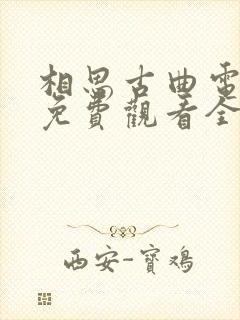 相思古曲電
免費觀看全
西安-寶鸡